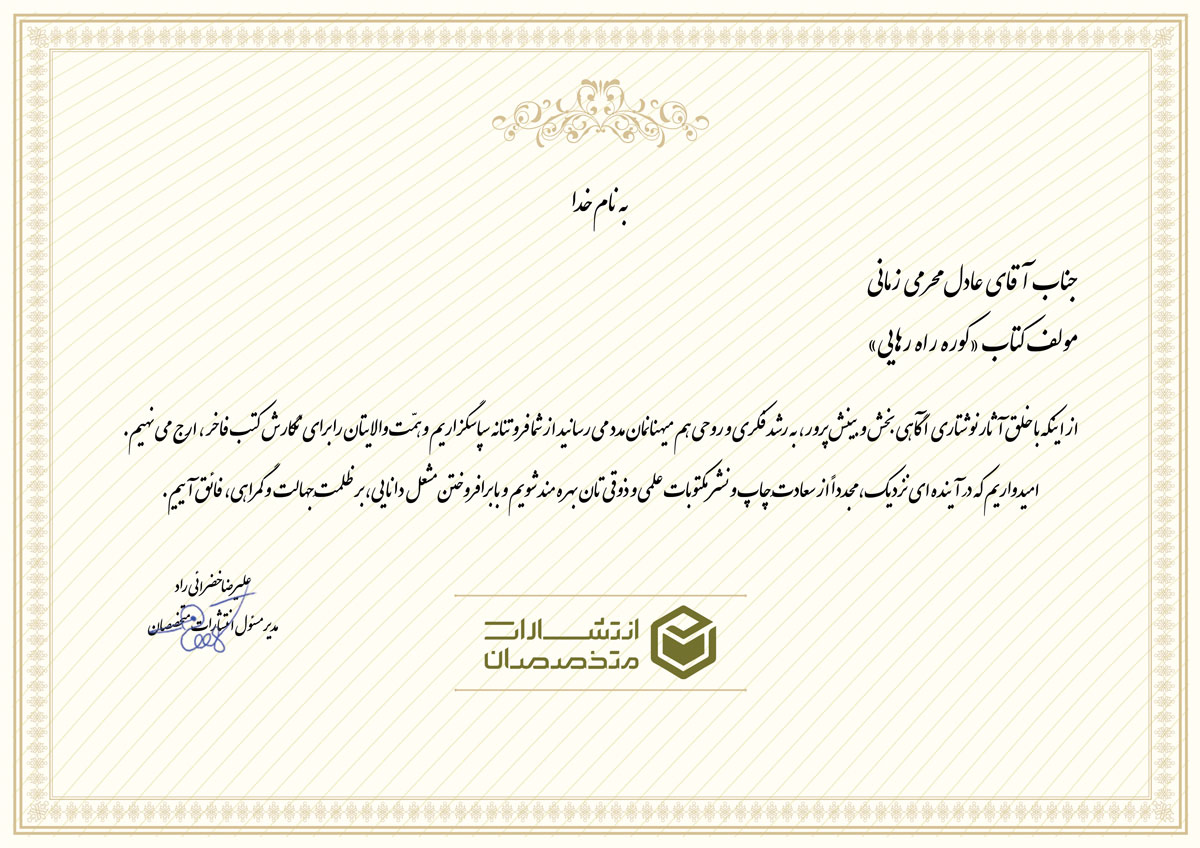 به نام خدا
جناب آقای عادل محرمی زمانی
مولف کتاب «کوره راه رهایی»
از اینکه با خلق آثار نوشتاری آگاهی بخش و بینش پرور، به رشد فکری و روحی هم میهنانمان مدد می رسانید از شما فروتنانه سپاسگزاریم و همّت والایتان را برای نگارش کتب فاخر، ارج می نهیم.
امیدواریم که در آینده ای نزدیک، مجدداً از سعادت چاپ و نشر مکتوبات علمی و ذوقی تان بهره مند شویم و با برافروختن مشعل دانایی، بر ظلمت جهالت و گمراهی، فائق آییم.
علیرضا خضرائی راد
مدیر مسئول انتشارات متخصصان
انتشارات
متخصصان